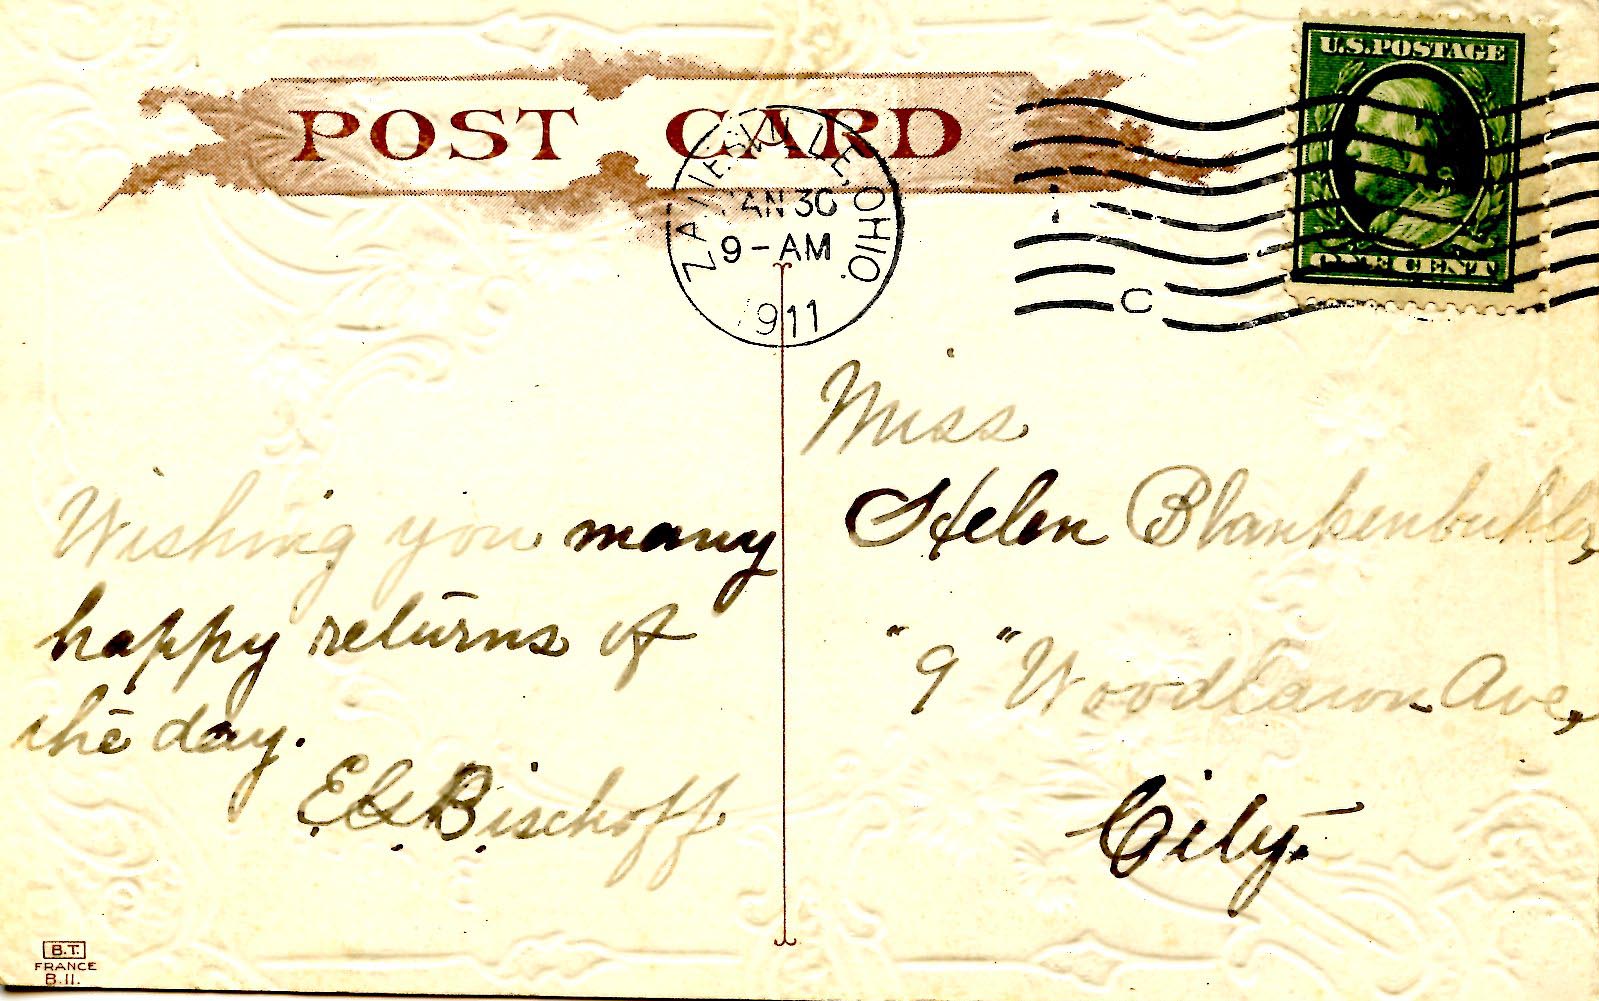 POST CARD
U.S. POSTAGE
ONE CENT
ZANESVILLE, OHIO.
JAN 30
9-AM
1911
C
Miss
Helen Blankenbuhler,
"9" Woodlawn Ave,
City.
Wishing you many
happy returns of
the day.
Bischoff
B.T.
FRANCE
B.11.